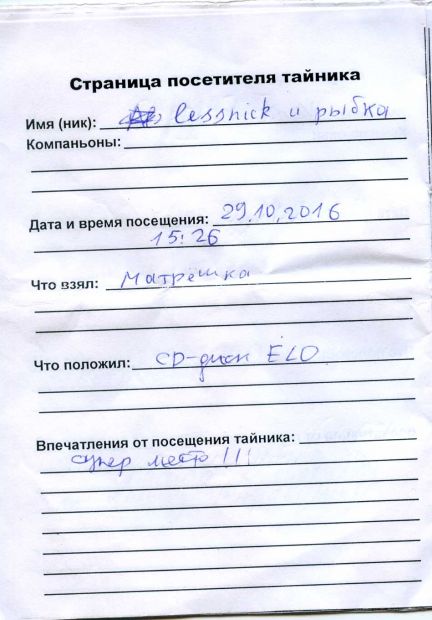 Страница посетителя тайника
Имя (ник): lessnick и рыбка
Компаньоны:
Дата и время посещения: 29.10.2016
15:26
Что взял: Матрёшка
Что положил: CD-диск ELO
Впечатления от посещения тайника:
супер место !!!